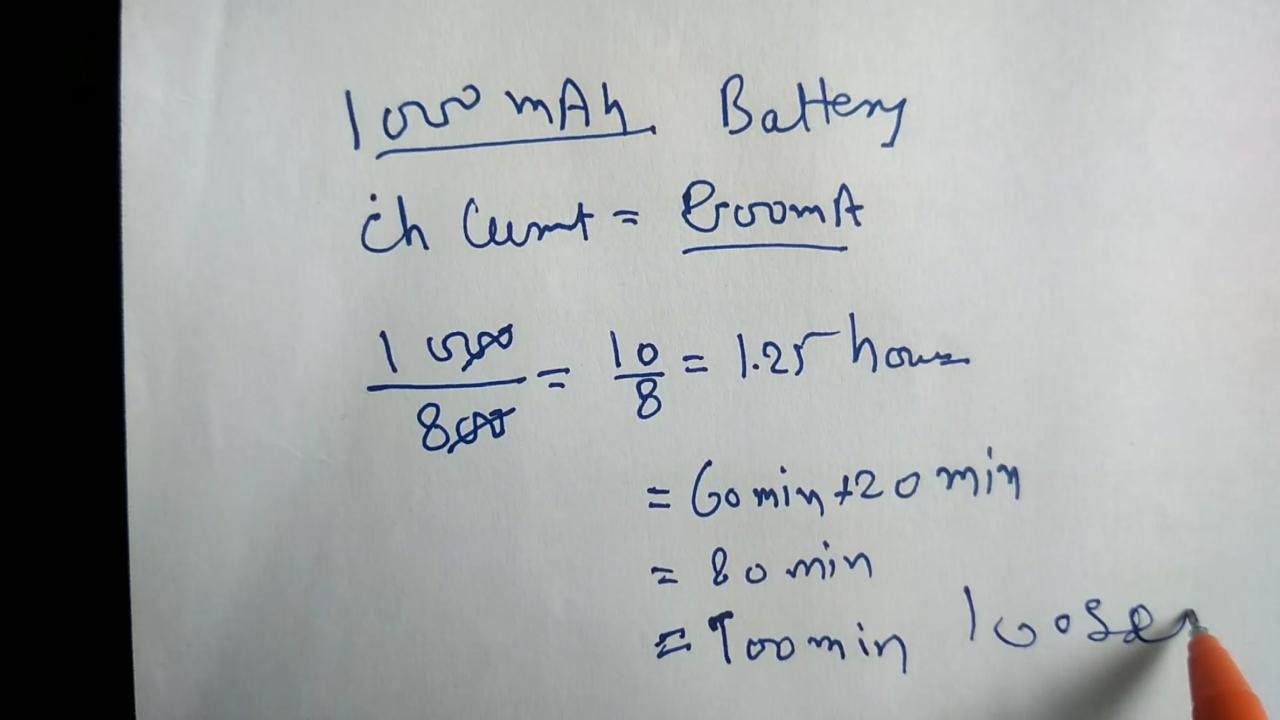 1000 mAh Battery
ch Current = 800mA
1000/800 = 10/8 = 1.25 hours
= 60min+20 min
= 80 min
= 100min 100se